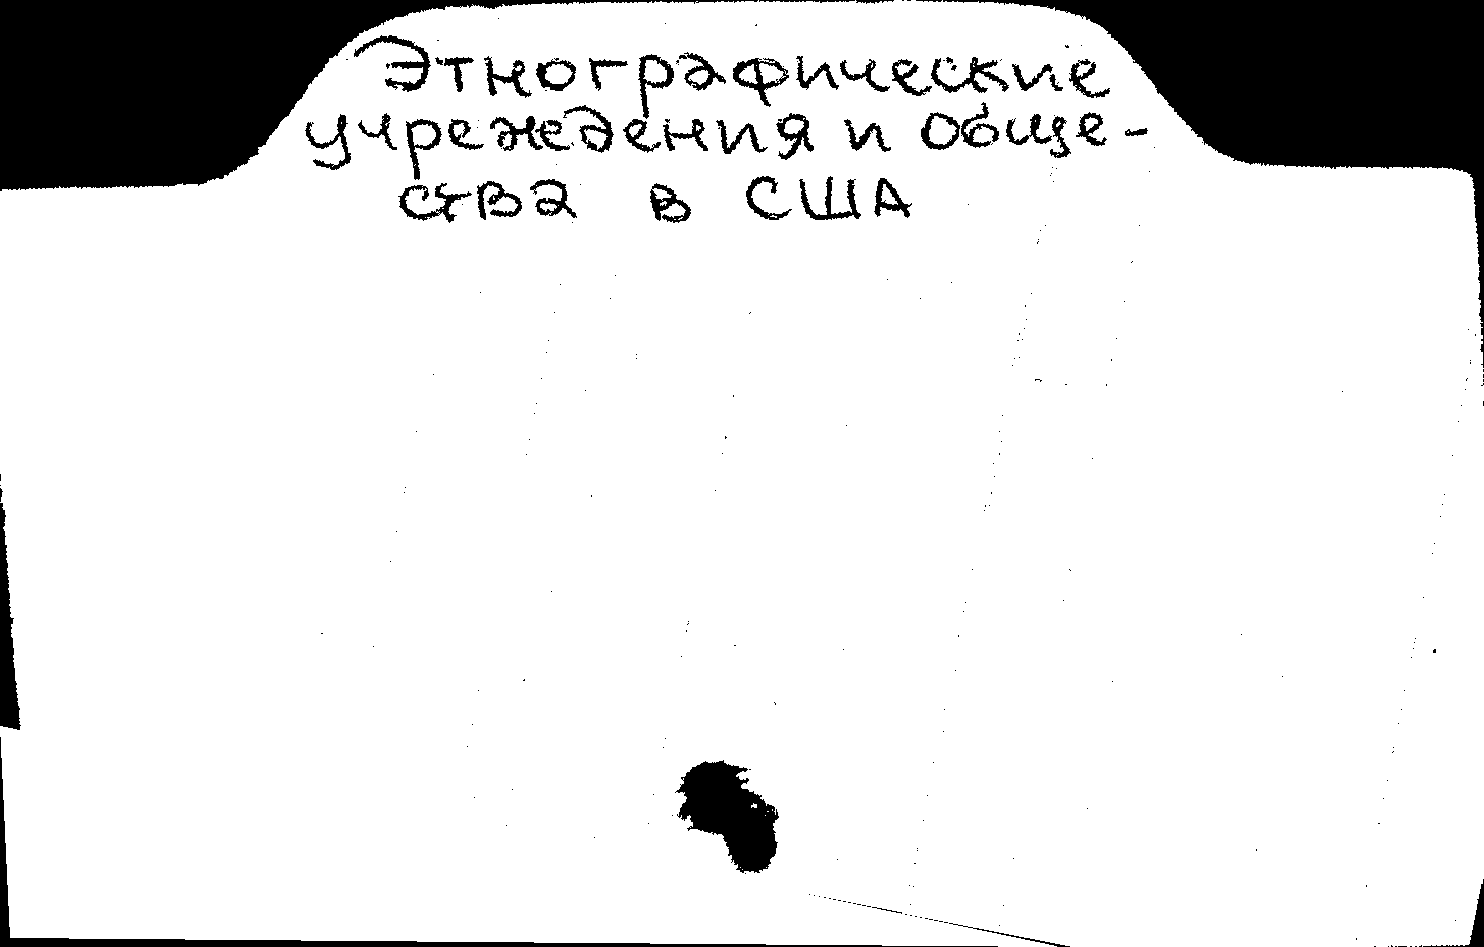 Этнографические
учреждения и обще-
ства в США